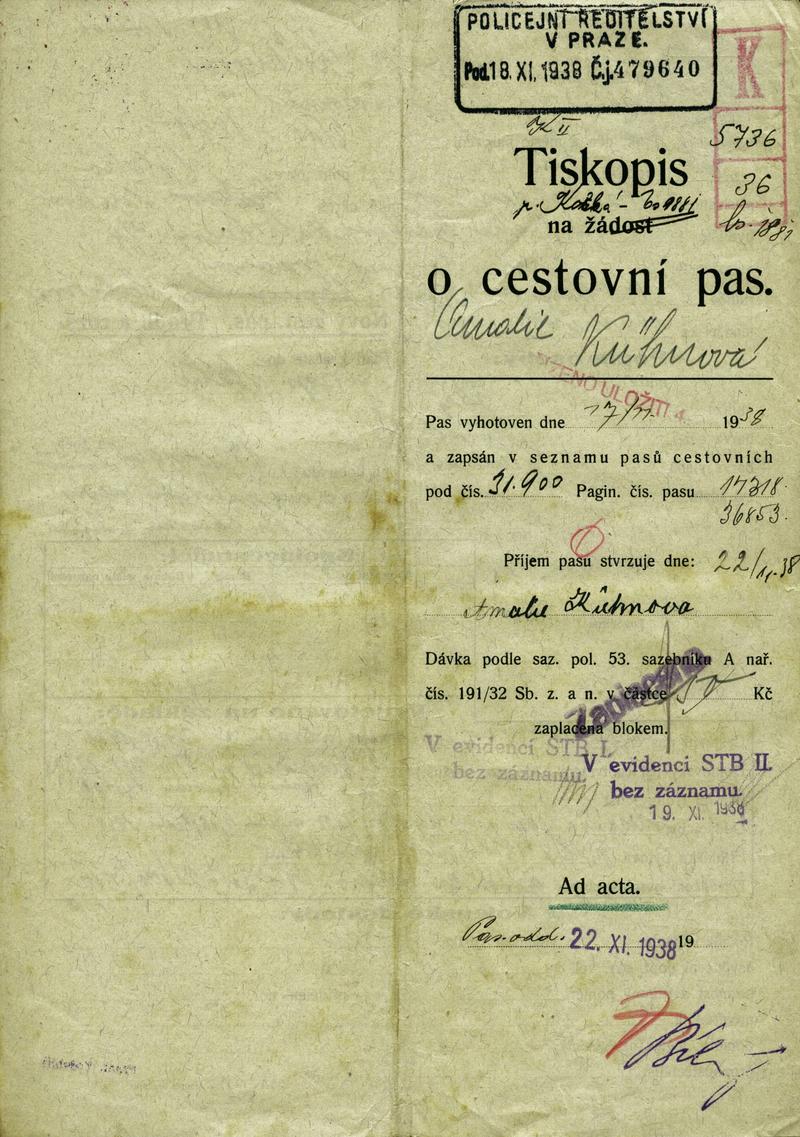 POLICEJNÍ ŘEDITELSTVÍ
V PRAZE.
Pod. 18. XI. 1938 Č.j. 479640
K
5736
36
Tiskopis
na žádost
o cestovní pas.
Amalie Kühnová
ULOŽITI
Pas vyhotoven dne 17/11 1938
a zapsán v seznamu pasů cestovních
pod čís. 31.900 Pagin. čís. pasu 17318
36853.
Příjem pasu stvrzuje dne: 22/11.38
Amalie Kühnova
Dávka podle saz. pol. 53. sazebníku A nař.
čís. 191/32 Sb. z. a n. v částce Kč
Zaplaceno
zaplacena blokem.
V evidenci STB I.
bez záznamu.
V evidenci STB II.
bez záznamu.
19. XI. 1938
Ad acta.
Pas. odd. 22. XI. 1938 19